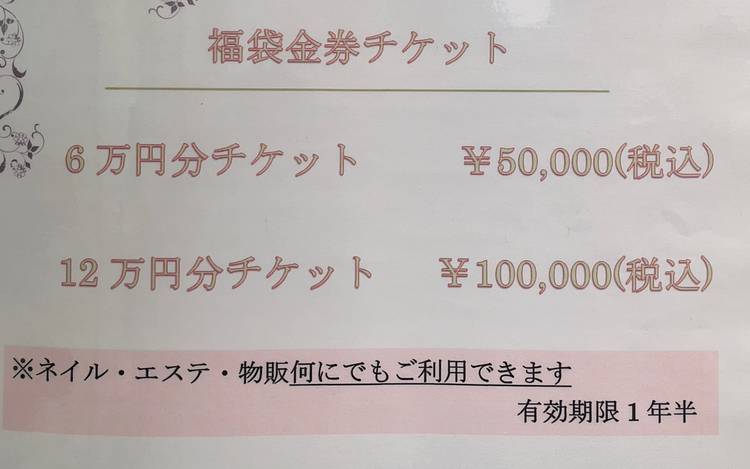 福袋金券チケット
6万円分チケット ￥50,000(税込)
12万円分チケット ￥100,000(税込)
※ネイル・エステ・物販何にでもご利用できます
有効期限1年半